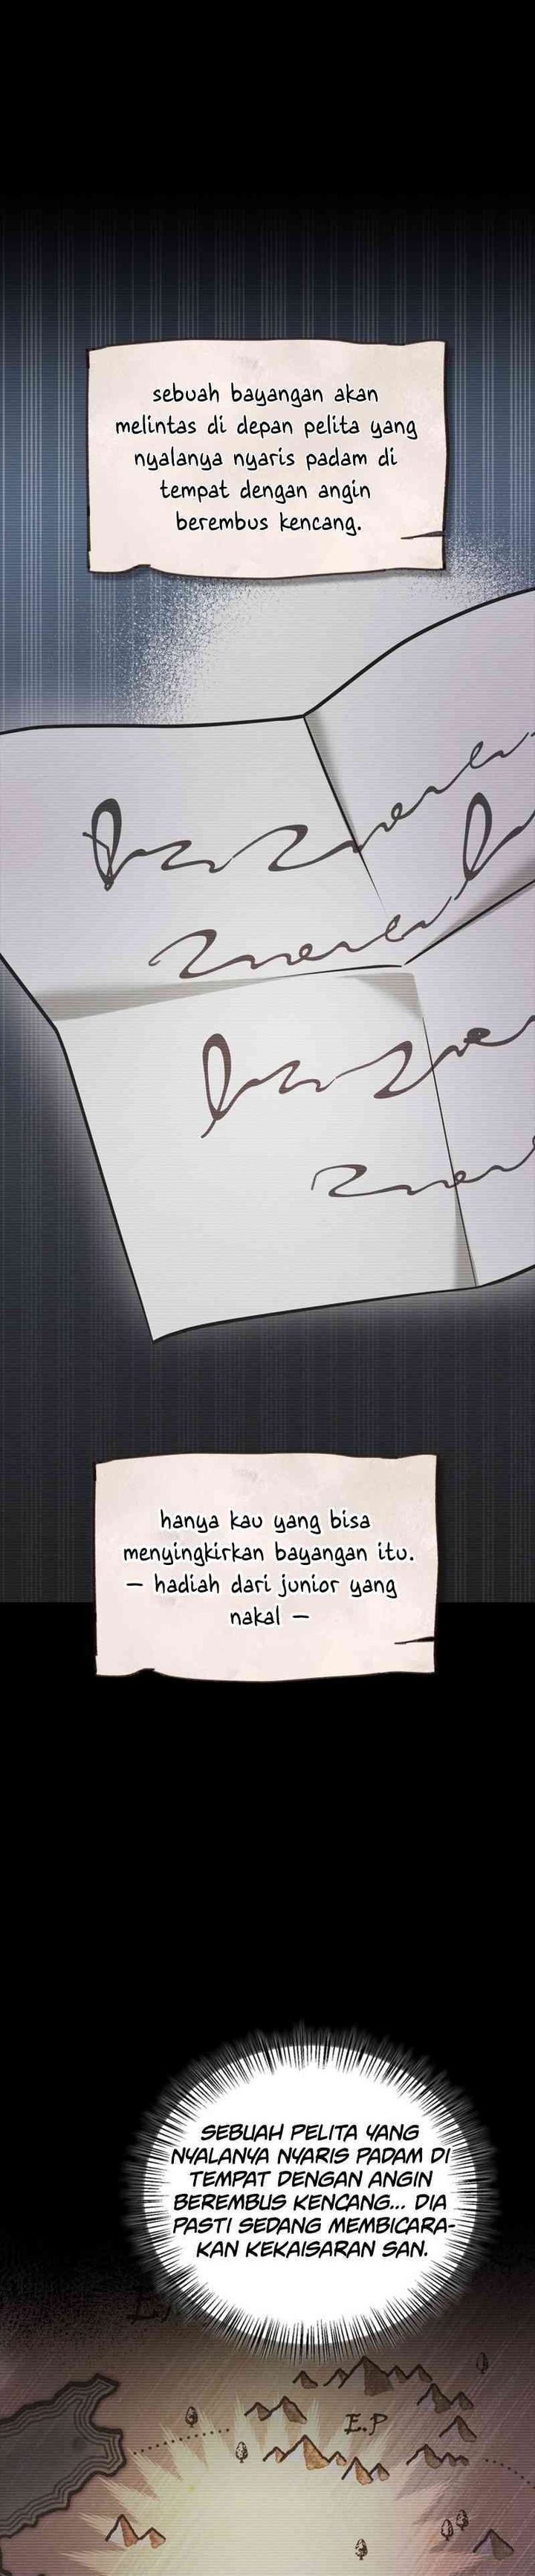 sebuah bayangan akan
melintas di depan pelita yang
nyalanya nyaris padam di
tempat dengan angin
berembus kencang.
hanya kau yang bisa
menyingkirkan bayangan itu.
— hadiah dari junior yang
nakal —
SEBUAH PELITA YANG
NYALANYA NYARIS PADAM DI
TEMPAT DENGAN ANGIN
BEREMBUS KENCANG... DIA
PASTI SEDANG MEMBICARA-
KAN KEKAISARAN SAN.
E.P